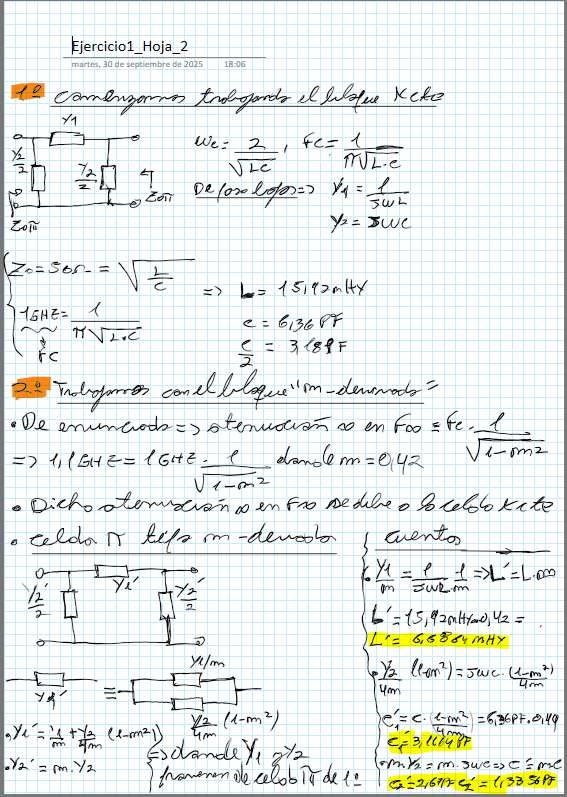 Ejercicio1_Hoja_2
martes, 30 de septiembre de 2025 18:06
1º Comenzamos trabajando el bloque Kcte
Y1
Y2/2 Y2/2 Z0π
Z0π
Wc = 2/√LC , Fc = 1/π√L·C
De paso bajo => Y1 = 1/JWL
Y2 = JWC
Z0 = 50Ω = √L/C => L = 15,92mHY
1GHZ = 1/π√L·C
FC
C = 6,36PF
C/2 = 3,18PF
2º Trabajamos con el bloque "m-derivado"
• De enunciado => atenuación ∞ en F∞ = Fc · 1/√1-m²
=> 1,1GHZ = 1GHZ · 1/√1-m² donde m = 0,42
• Dicha atenuación ∞ en F∞ se debe a la celda Kcte
• Celda π tipo m-derivada
Y1'
Y2'/2 Y2'/2
Y1' ≡ Y1/m
Y2/4m (1-m²)
• Y1' = Y1/m + Y2/4m (1-m²)
• Y2' = m·Y2
=> donde Y1 y Y2
provienen de celda π de 1º
Cuentas
• Y1/m = 1/JWL · 1/m => L' = L·m
L' = 15,92mHY·0,42 =
L' = 6,6864mHY
• Y2/4m (1-m²) = JWC · (1-m²)/4m
C1' = C · (1-m²)/4m = 6,36PF·0,49
C1' = 3,1164PF
• m·Y2 = m·JWC => C2' = m·C
C2' = 2,67PF C2'/2 = 1,3356PF